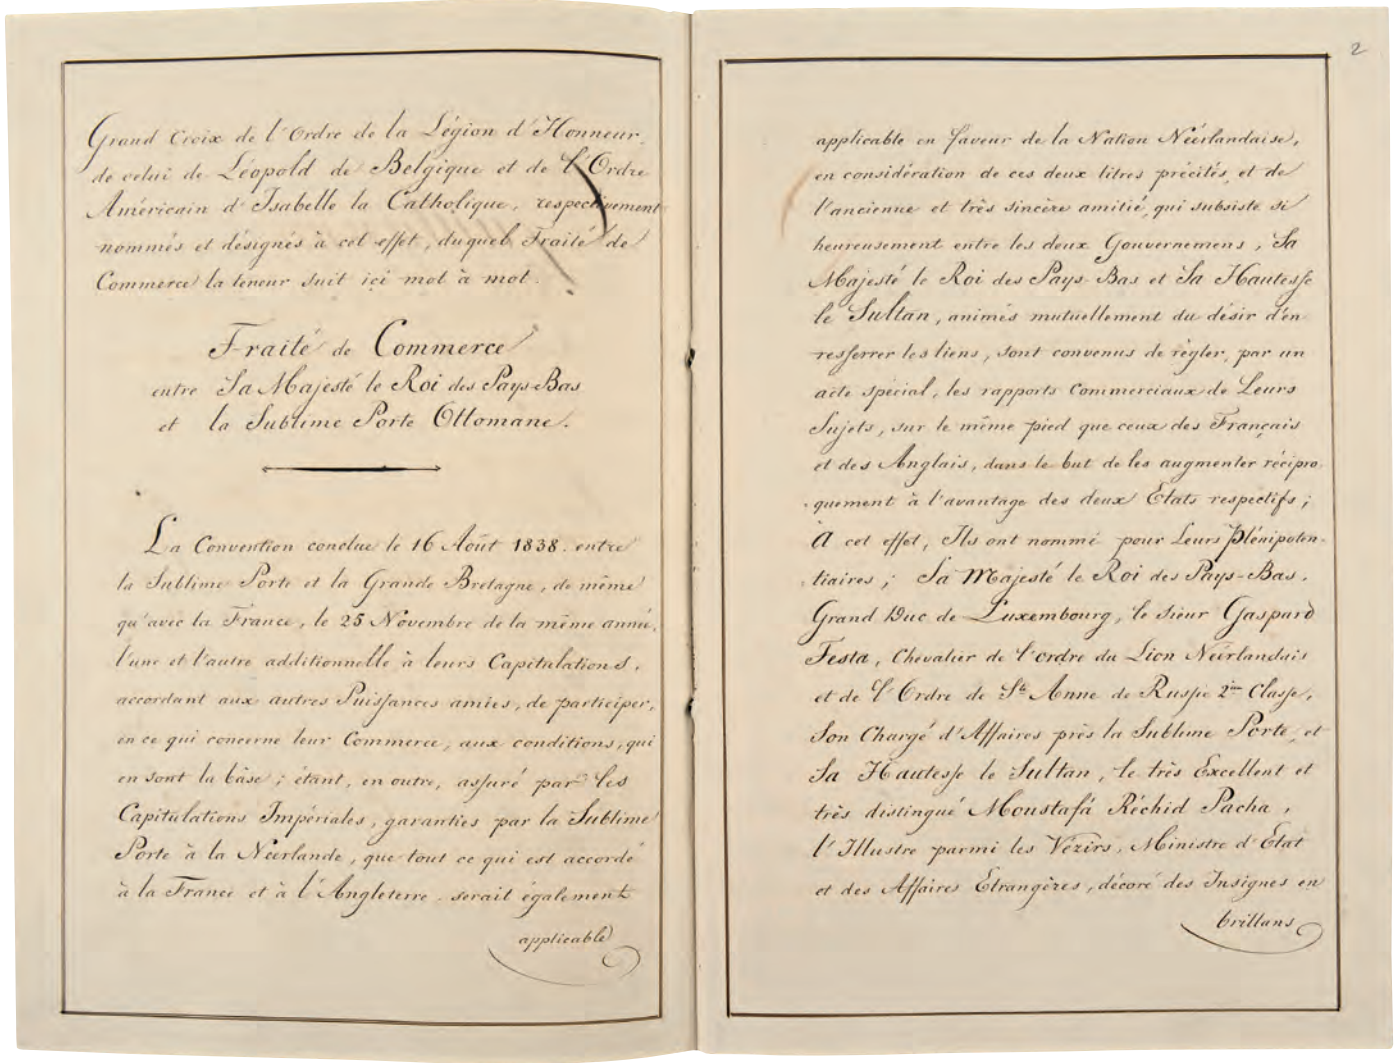 Grand Croix de l'Ordre de la Légion d'Honneur,
de celui de Léopold de Belgique et de l'Ordre
Américain d'Isabelle la Catholique, respectivement
nommés et désignés à cet effet, duquel Traité de
Commerce la teneur suit ici mot à mot.
Traité de Commerce
entre Sa Majesté le Roi des Pays-Bas
et la Sublime Porte Ottomane.
La Convention conclue le 16 Août 1838. entre
la Sublime Porte et la Grande Bretagne, de même
qu'avec la France, le 25 Novembre de la même année,
l'une et l'autre additionnelle à leurs Capitulations,
accordant aux autres Puissances amies, de participer,
en ce qui concerne leur Commerce, aux conditions, qui
en sont la bâse; étant, en outre, assuré par les
Capitulations Impériales, garanties par la Sublime
Porte à la Néerlande, que tout ce qui est accordé
à la France et à l'Angleterre serait également
applicable
2
applicable en faveur de la Nation Néerlandaise,
en considération de ces deux titres précités, et de
l'ancienne et très sincère amitié, qui subsiste si
heureusement entre les deux Gouvernemens, Sa
Majesté le Roi des Pays-Bas et Sa Hautesse
le Sultan, animés mutuellement du désir d'en
resserrer les liens, sont convenus de règler, par un
acte spécial, les rapports Commerciaux de Leurs
Sujets, sur le même pied que ceux des Français
et des Anglais, dans le but de les augmenter récipro-
quement à l'avantage des deux Etats respectifs;
A cet effet, Ils ont nommé pour Leurs Plénipoten-
tiaires; Sa Majesté le Roi des Pays-Bas,
Grand Duc de Luxembourg, le Sieur Gaspard
Testa, Chevalier de l'ordre du Lion Néerlandais
et de l'Ordre de Ste Anne de Russie 2ème Classe,
Son Chargé d'Affaires près la Sublime Porte, et
Sa Hautesse le Sultan, le très Excellent et
très distingué Moustafá Réchid Pacha,
l'Illustre parmi les Vézirs, Ministre d'Etat
et des Affaires Etrangères, décoré des Insignes en
brillans